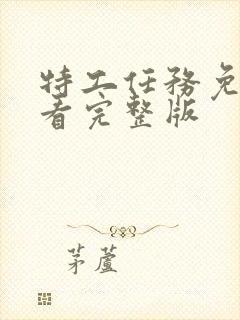 特工任務免
看完整版
茅蘆